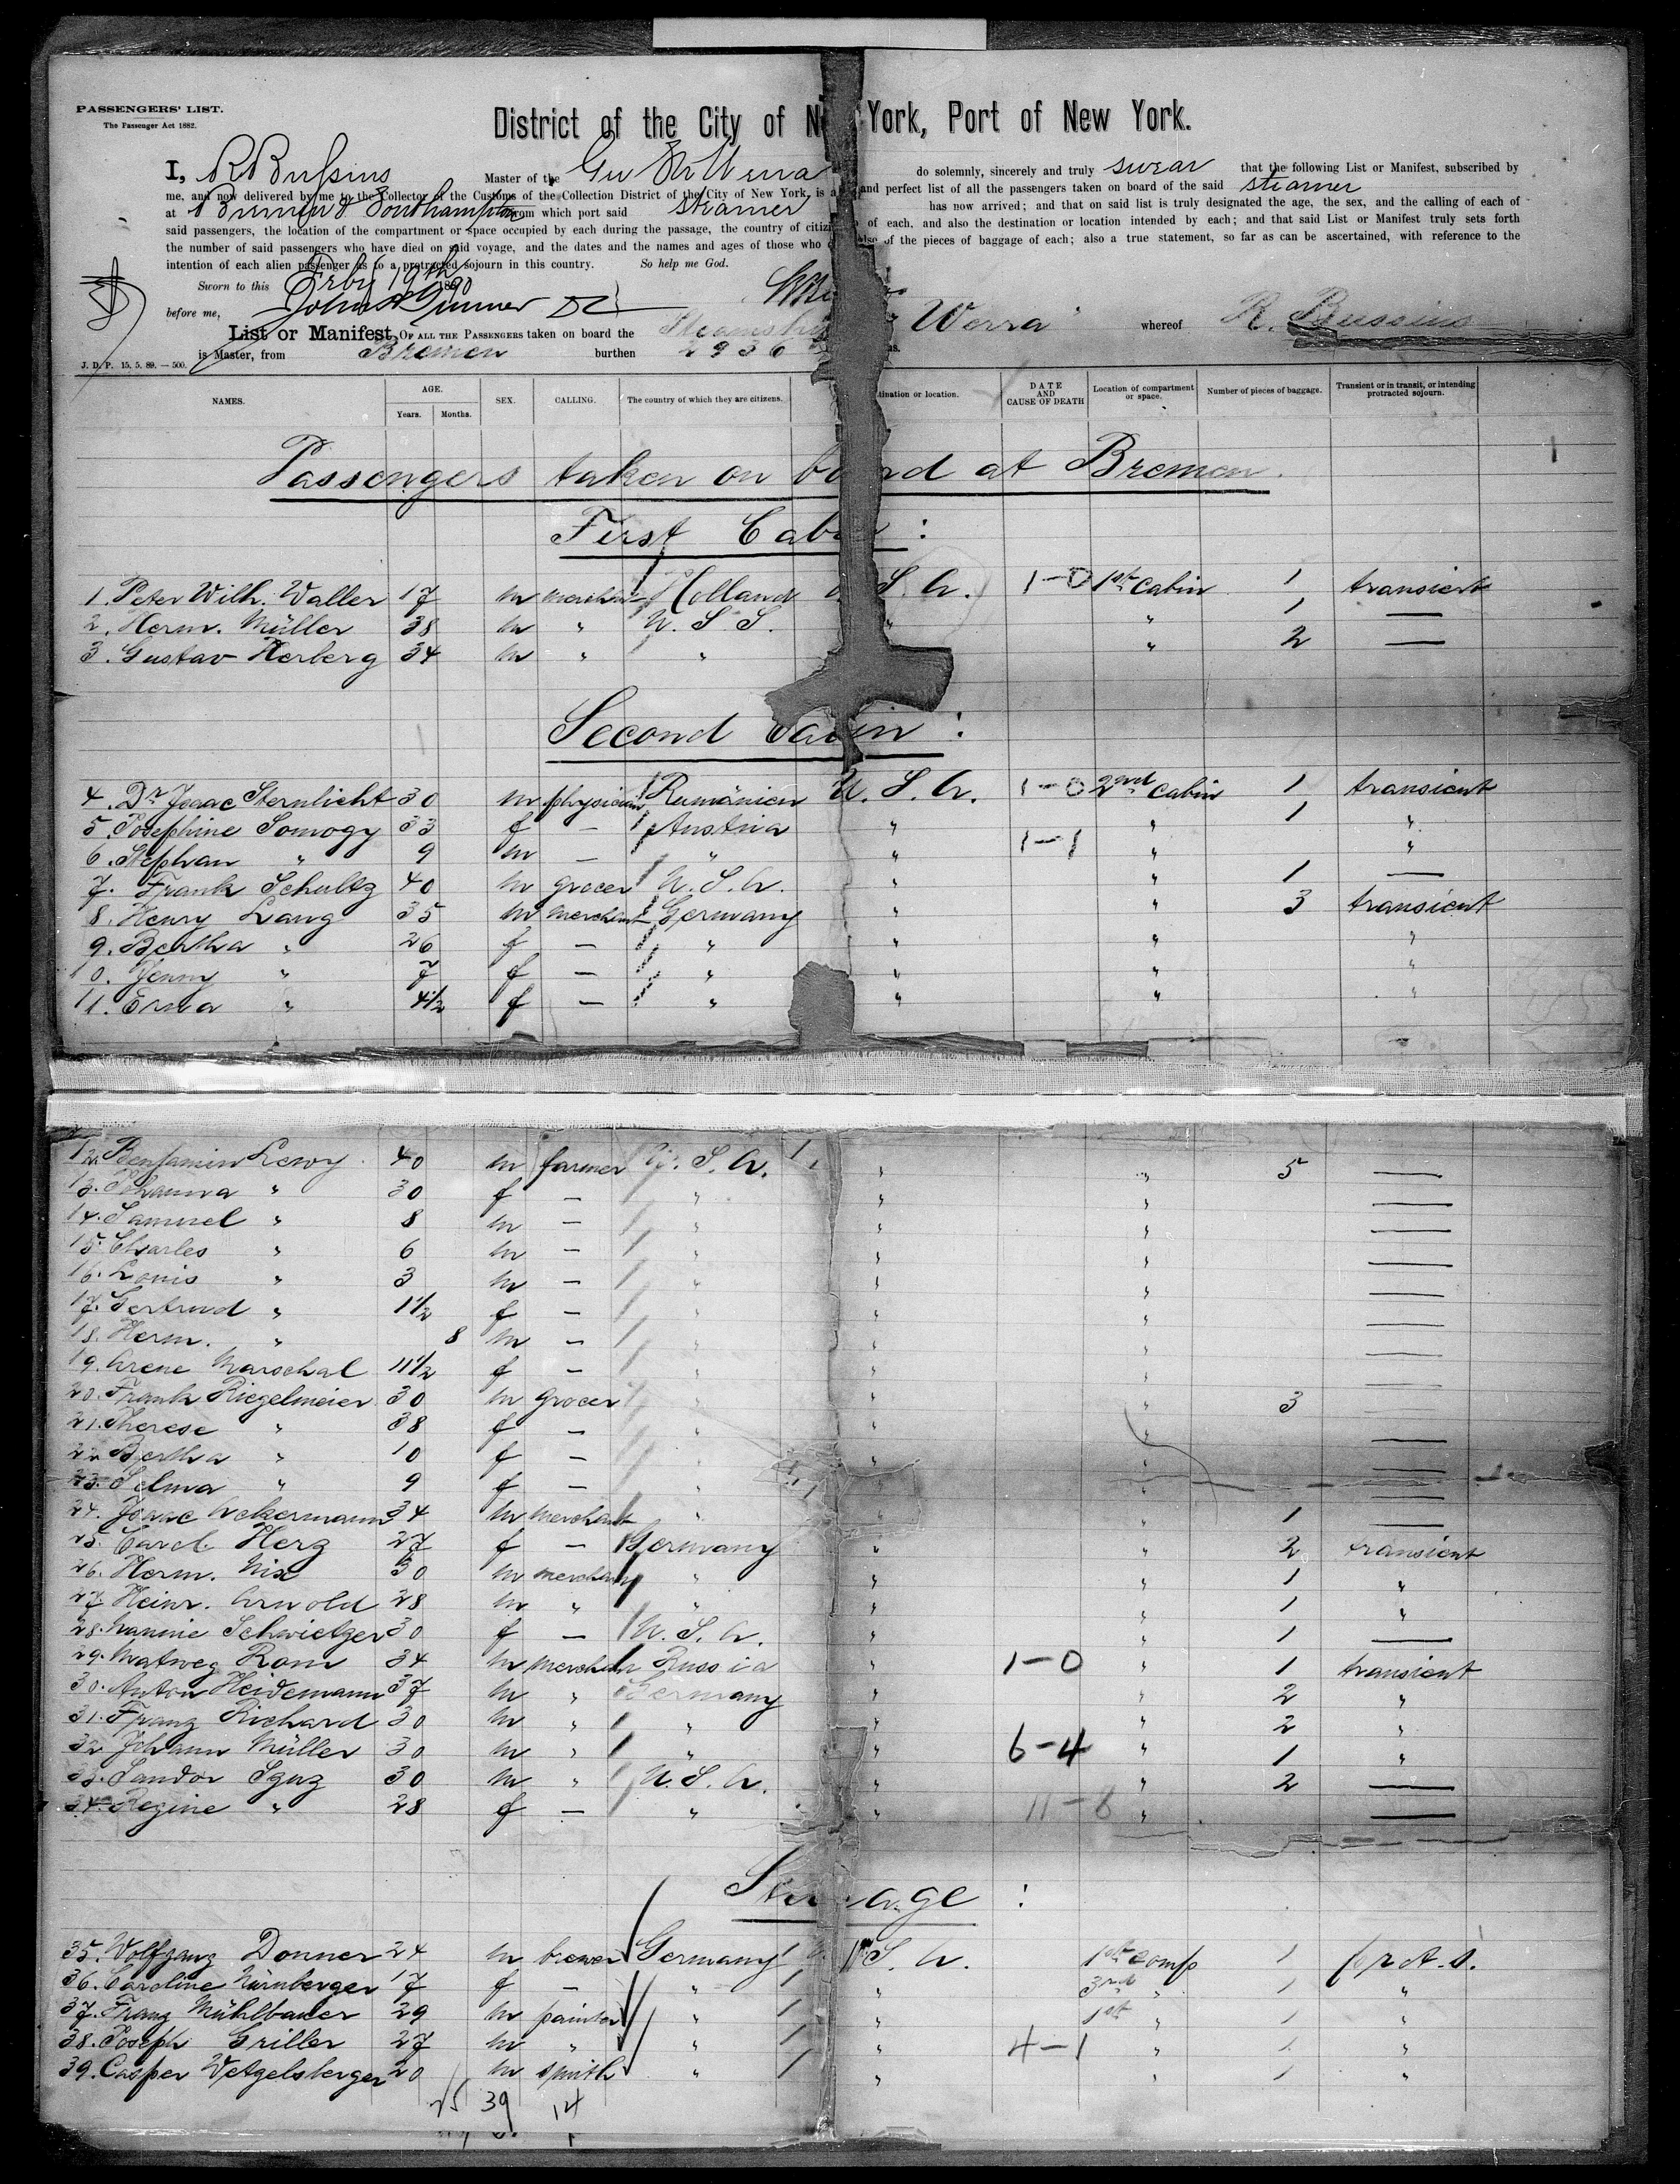 PASSENGERS' LIST.
The Passenger Act 1882.
District of the City of N York, Port of New York.
I, R Bussius Master of the Ger Str Werra do solemnly, sincerely and truly swear that the following List or Manifest, subscribed by
me, and now delivered by me to the Collector of the Customs of the Collection District of the City of New York, is a and perfect list of all the passengers taken on board of the said steamer
at Bremen & Southampton from which port said steamer has now arrived; and that on said list is truly designated the age, the sex, and the calling of each of
said passengers, the location of the compartment or space occupied by each during the passage, the country of citiz of each, and also the destination or location intended by each; and that said List or Manifest truly sets forth
the number of said passengers who have died on said voyage, and the dates and the names and ages of those who also of the pieces of baggage of each; also a true statement, so far as can be ascertained, with reference to the
intention of each alien passenger as to a protracted sojourn in this country. So help me God.
Sworn to this Feby 19th 1890
before me,
List or Manifest OF ALL THE PASSENGERS taken on board the Steamship Werra whereof R. Bussius
is Master, from Bremen burthen 2936
J. D. P. 15. 5. 89. — 500.
NAMES. AGE. Years. Months. SEX. CALLING. The country of which they are citizens. tination or location. DATE AND CAUSE OF DEATH Location of compartment or space. Number of pieces of baggage. Transient or in transit, or intending protracted sojourn.
Passengers taken on bo rd at Bremen.
First Cabi :
1. Peter Wilh. Waller 17 m merchant Holland U. S. A. 1-0 1st Cabin 1 transient
2. Herm. Müller 38 m " U. S. S. " " 1 —
3. Gustav Herberg 34 m " " " 2 —
Second Cabin :
4. Dr Isaac Sternlicht 30 m physician Rumänien U. S. A. 1-0 2nd Cabin 1 transient
5. Josephine Somogy 33 f — Austria " " 1 "
6. Stephan " 9 m — " " 1-1 " "
7. Frank Schultz 40 m grocer U. S. A. " " 1 —
8. Henry Lang 35 m merchant Germany " " 3 transient
9. Bertha " 26 f — " " " "
10. Jenny " 7 f — " " " "
11. Erna " 4½ f — " " " "
12. Benjamin Lewy 40 m farmer U. S. A. " " 5 —
13. Johanna " 30 f — " " " —
14. Samuel " 8 m — " " " —
15. Charles " 6 m — " " " —
16. Louis " 3 m — " " " —
17. Gertrud " 1½ f — " " " —
18. Herm. " 8 m — " " " —
19. Arene Marschal 11½ f — " " " —
20. Frank Riegelmeier 30 m grocer " " " 3 —
21. Therese " 38 f — " " " —
22 Bertha " 10 f — " " " —
23. Selma " 9 f — " " " —
24. Isaac Ackermann 34 m merchant " " " 1 —
25. Carol. Herz 27 f — Germany " " 2 transient
26. Herm. Nix 30 m merchant " " " 1 "
27. Heinr. Arnold 28 m " " " " 1 "
28. Nannie Schwietzer 30 f — U. S. A. " " 1 —
29. Matweg Rom 34 m merchan Russia " 1-0 " 1 transient
30. Anton Heidemann 37 m " Germany " " 2 "
31. Franz Richard 30 m " " " " 2 "
32 Johann Müller 30 m " " " 6-4 " 1 "
33. Sandor Sguz 30 m " U. S. A. " " 2 —
34. Regine " 28 f — " " 11-6 " —
Ste age :
35. Wolfgang Donner 24 m brewer Germany U. S. A. 1st comp 1 prot. s.
36. Caroline Nürnberger 17 f — " " 3rd " 1 "
37. Franz Mühlbauer 29 m painter " " 1st " 1 "
38. Joseph Griller 27 m " " " 4-1 " 1 "
39. Casper Wetzelsberger 20 m smith " " " 1 "
25 39 14